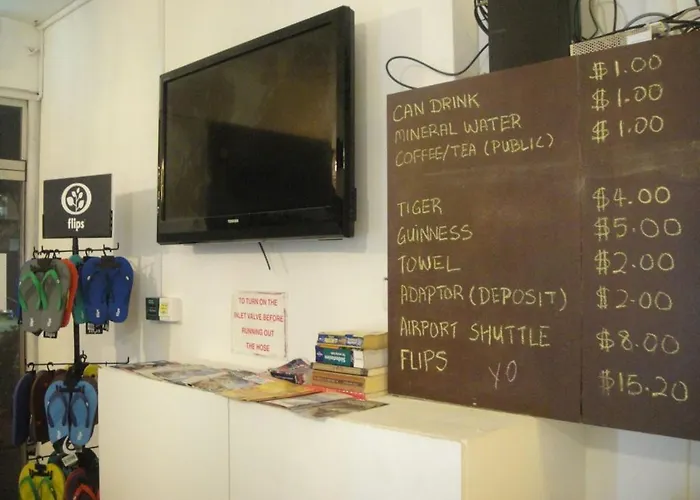 CAN DRINK $1.00
MINERAL WATER $1.00
COFFEE/TEA (PUBLIC) $1.00
TIGER $4.00
GUINNESS $5.00
TOWEL $2.00
ADAPTOR (DEPOSIT) $2.00
AIRPORT SHUTTLE $8.00
FLIPS $15.20
YO
TOSHIBA
flips
TO TURN ON THE
INLET VALVE BEFORE
RUNNING OUT
THE HOSE